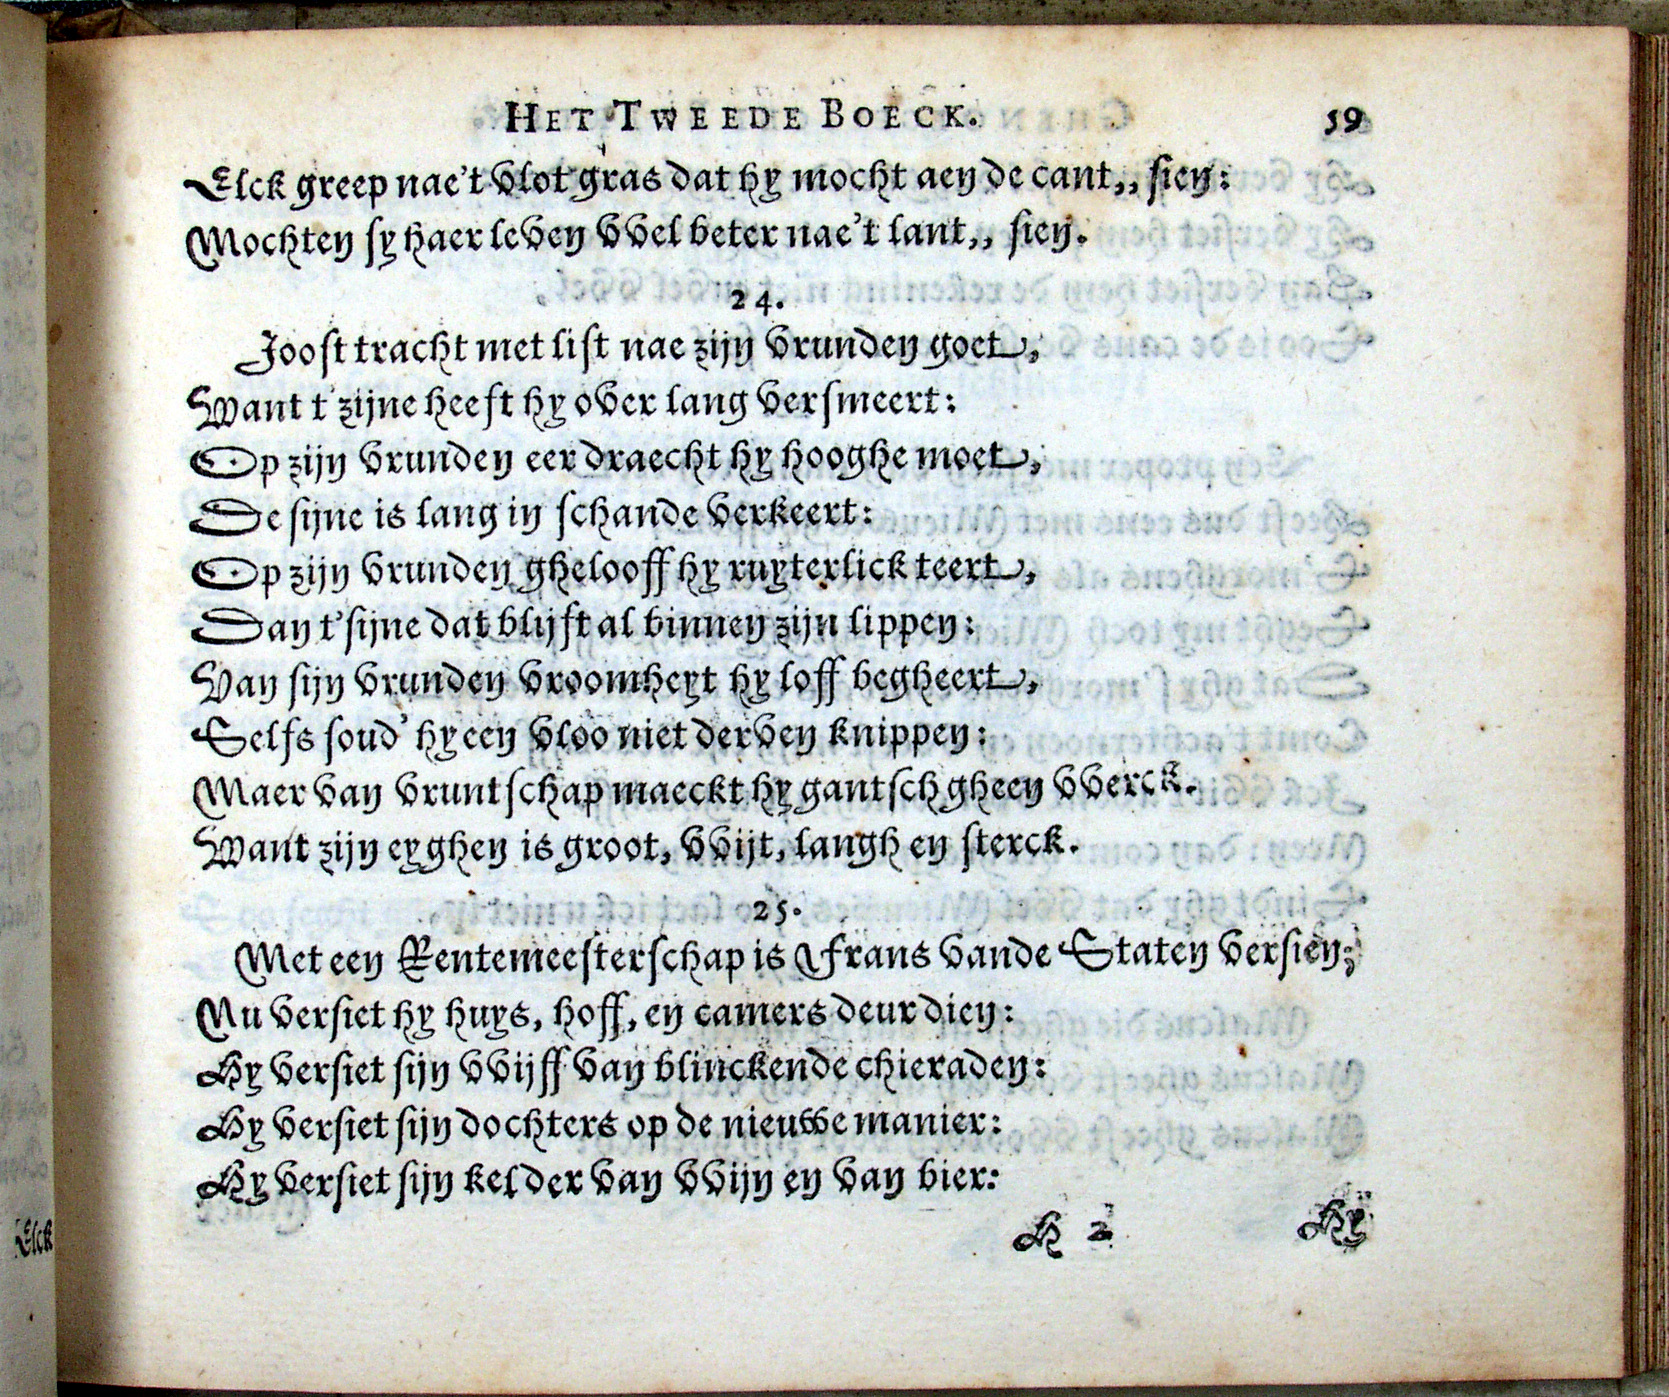 HET TWEEDE BOECK. 59
Elck greep nae't vlot gras dat hy mocht aen de cant,, sien:
Mochten sy haer leven vvel beter nae't lant,, sien.
24.
Joost tracht met list nae zijn vrunden goet,
Want t'zijne heeft hy over lang versmeert:
Op zijn vrunden eer draecht hy hooghe moet,
De sijne is lang in schande verkeert:
Op zijn vrunden ghelooff hy ruyterlick teert,
Dan t'sijne dat blijft al binnen zijn lippen:
Van sijn vrunden vroomheyt hy loff begheert,
Selfs soud' hy een vloo niet derven knippen:
Maer van vruntschap maeckt hy gantsch gheen vverck.
Want zijn eyghen is groot, vvijt, langh en sterck.
25.
Met een Rentemeesterschap is Frans vande Staten versien;
Nu versiet hy huys, hoff, en camers deur dien:
Hy versiet sijn vvijff van blinckende chieraden:
Hy versiet sijn dochters op de nieuwe manier:
Hy versiet sijn kelder van vvijn en van bier:
H 2 Hy
Elck